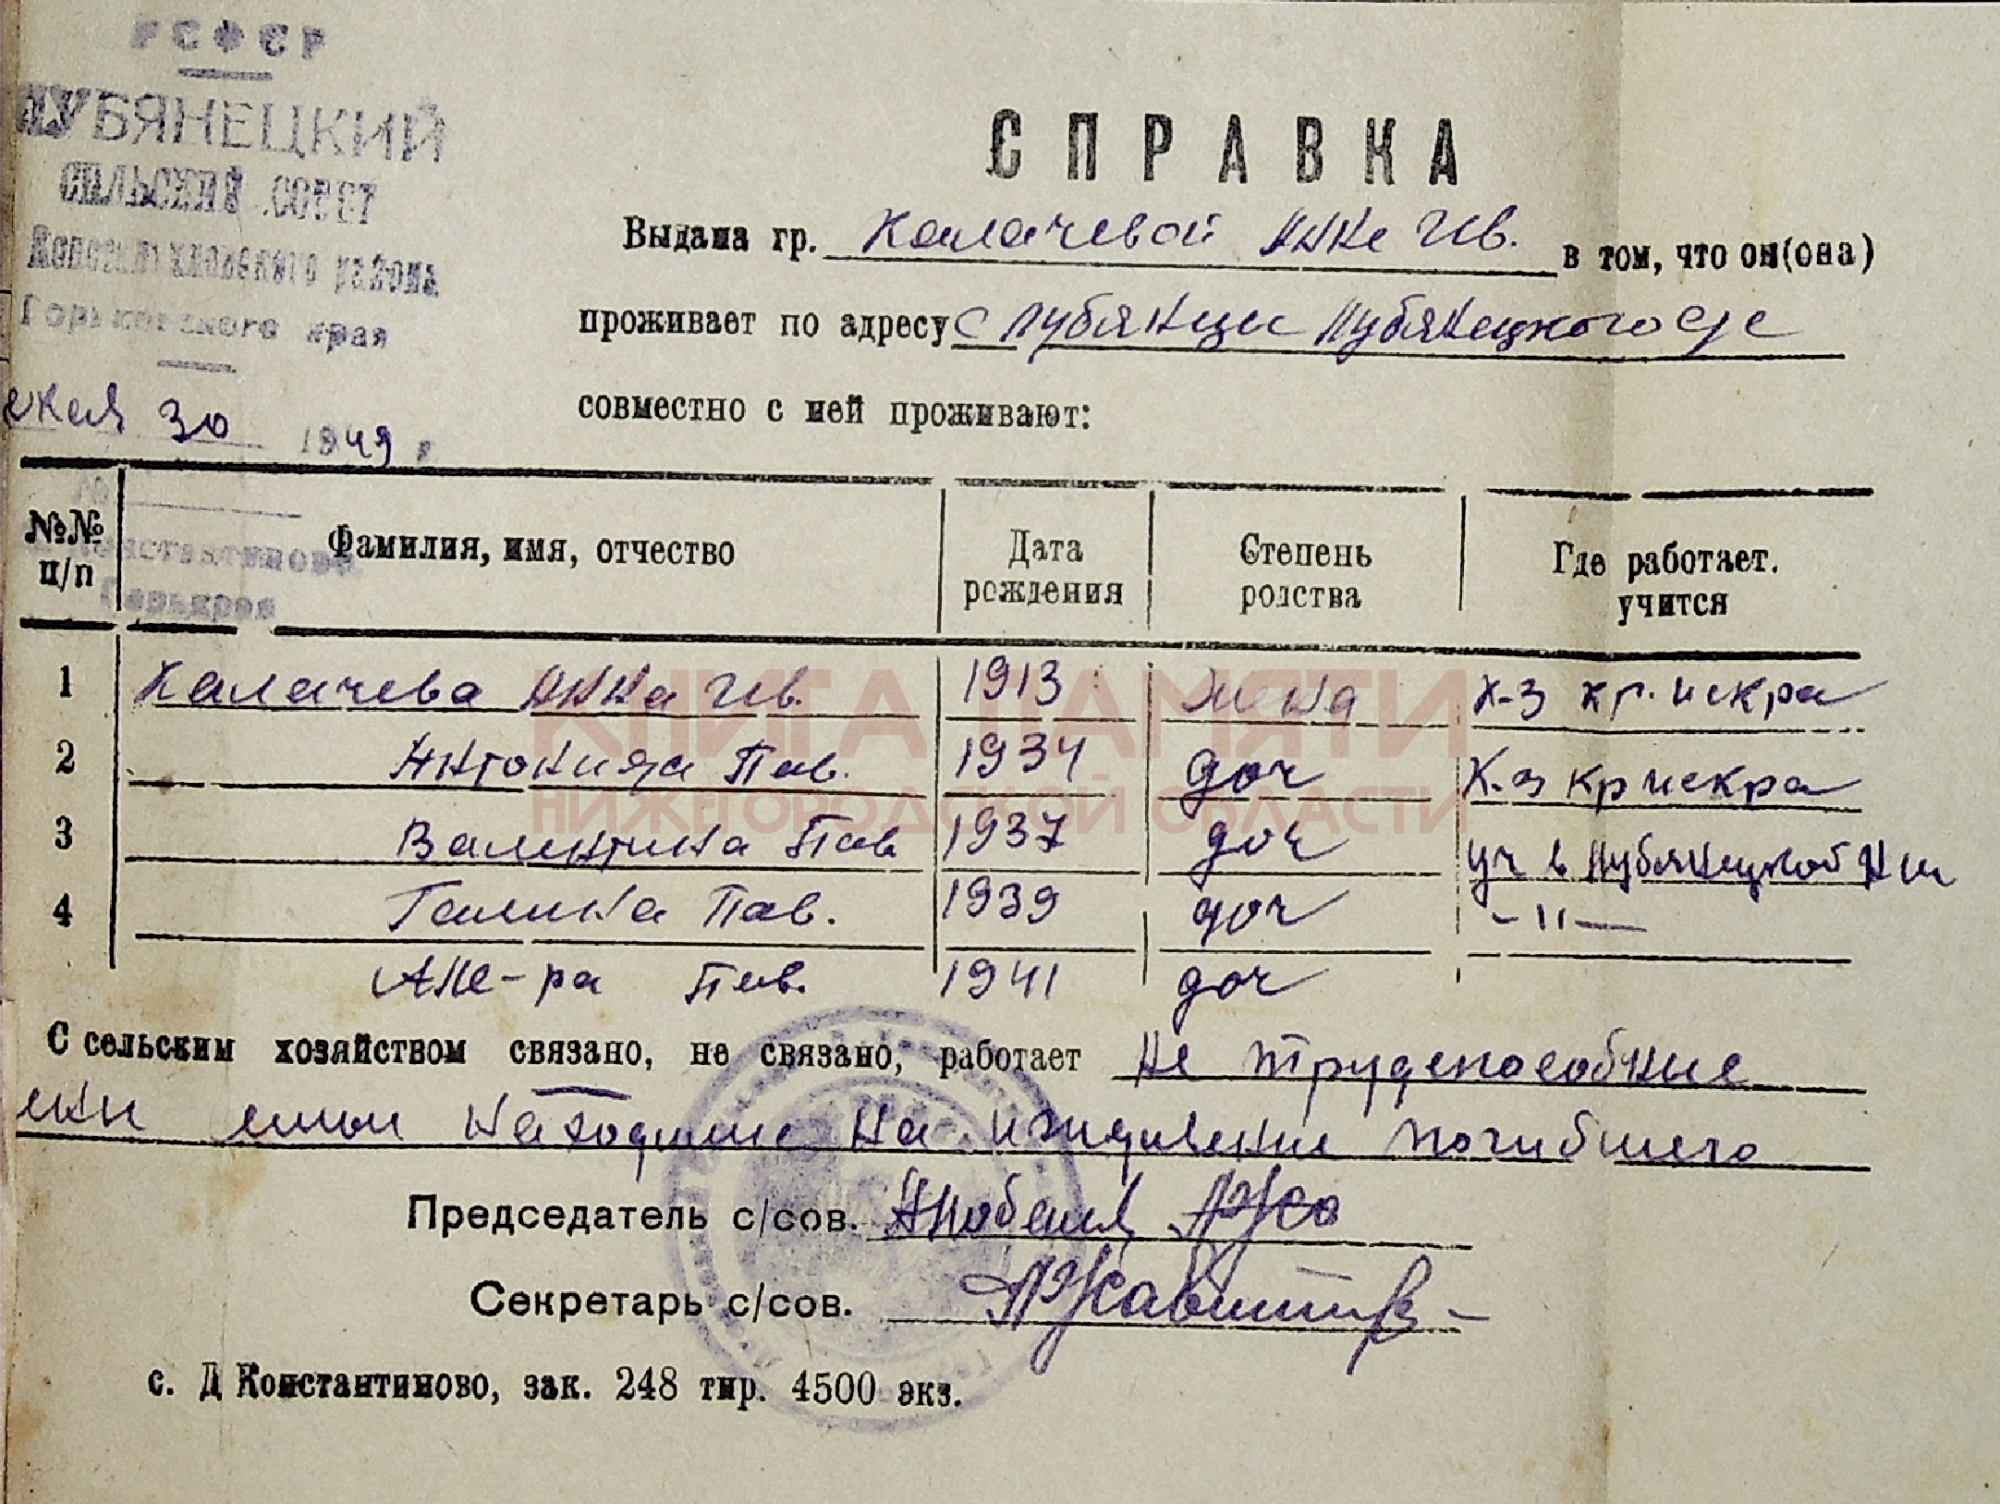 РСФСР
ЛУБЯНЕЦКИЙ
СЕЛЬСКИЙ СОВЕТ
района
Горьковского края
30 1949 г
СПРАВКА
Выдана гр. Калачевой Анне Ив. в том, что он(она)
проживает по адресу с Лубянцы Лубянецкого с/с
совместно с ней проживают:
№№ п/п Фамилия, имя, отчество Дата рождения Степень родства Где работает. учится
Константиново
Горькрая
1 Калачева Анна Ив. 1913 жена К-з кр. искра
2 Антонида Пав. 1934 доч К-з кр искра
3 Валентина Пав 1937 доч уч в Лубянецкой Н ш
4 Галина Пав. 1939 доч -"-
Але-ра Пав. 1941 доч
С сельским хозяйством связано, не связано, работает Не трудспособные
находились на иждивение погибшего
Председатель с/сов.
Секретарь с/сов.
с. Д Константиново, зак. 248 тир. 4500 экз.
КНИГА ПАМЯТИ
НИЖЕГОРОДСКОЙ ОБЛАСТИ